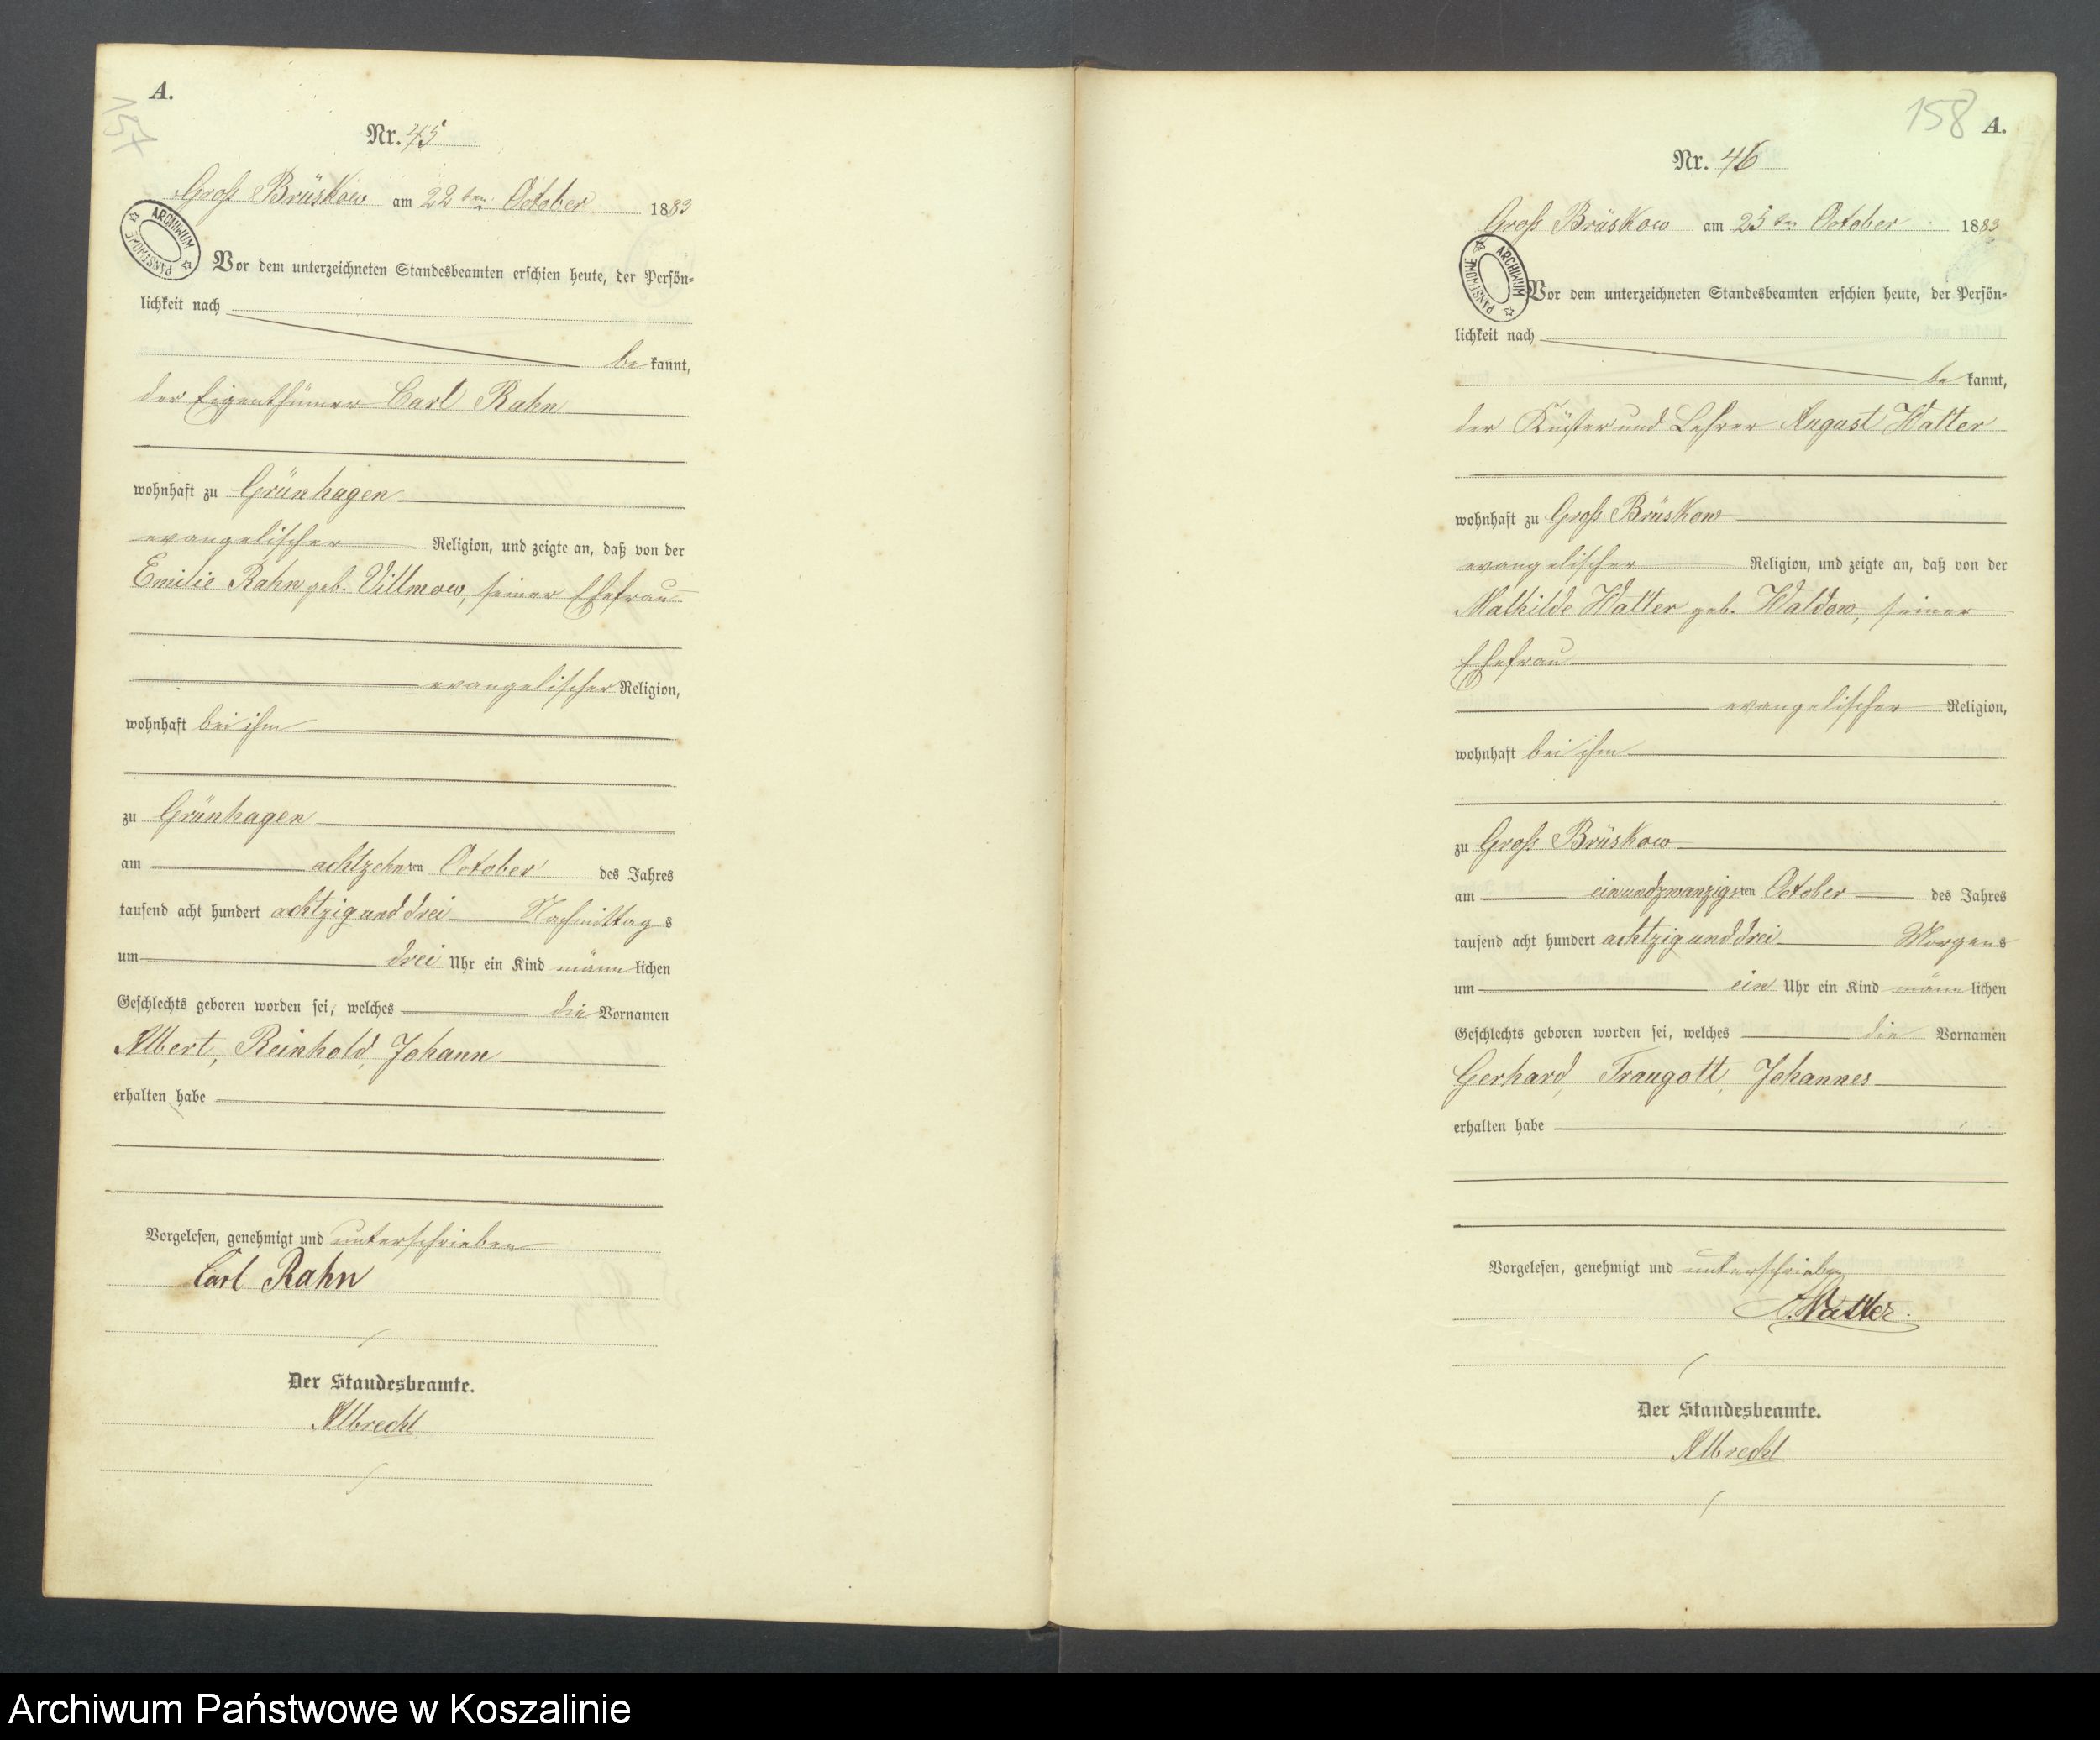 A.
157
Nr. 45
Groß Brüskow am 22ten October 1883
ARCHIWUM PAŃSTWOWE
Vor dem unterzeichneten Standesbeamten erschien heute, der Persön-
lichkeit nach
be kannt,
der Eigenthümer Carl Rahn
wohnhaft zu Grünhagen
evangelischer Religion, und zeigte an, daß von der
Emilie Rahn geb. Villmow, seiner Ehefrau
evangelischer Religion,
wohnhaft bei ihm
zu Grünhagen
am achtzehnten October des Jahres
tausend acht hundert achtzig und drei Nachmittags
um drei Uhr ein Kind männlichen
Geschlechts geboren worden sei, welches die Vornamen
Albert, Reinhold, Johann
erhalten habe
Vorgelesen, genehmigt und unterschrieben
Carl Rahn
Der Standesbeamte.
Albrecht
158
A.
Nr. 46
Groß Brüskow am 25ten October 1883
ARCHIWUM PAŃSTWOWE
Vor dem unterzeichneten Standesbeamten erschien heute, der Persön-
lichkeit nach
be kannt,
der Küster und Lehrer August Watter
wohnhaft zu Groß Brüskow
evangelischer Religion, und zeigte an, daß von der
Mathilde Watter geb. Waldow, seiner
Ehefrau
evangelischer Religion,
wohnhaft bei ihm
zu Groß Brüskow
am einundzwanzigsten October des Jahres
tausend acht hundert achtzig und drei Morgens
um ein Uhr ein Kind männlichen
Geschlechts geboren worden sei, welches die Vornamen
Gerhard, Traugott, Johannes
erhalten habe
Vorgelesen, genehmigt und unterschrieben
A. Watter.
Der Standesbeamte.
Albrecht
Archiwum Państwowe w Koszalinie